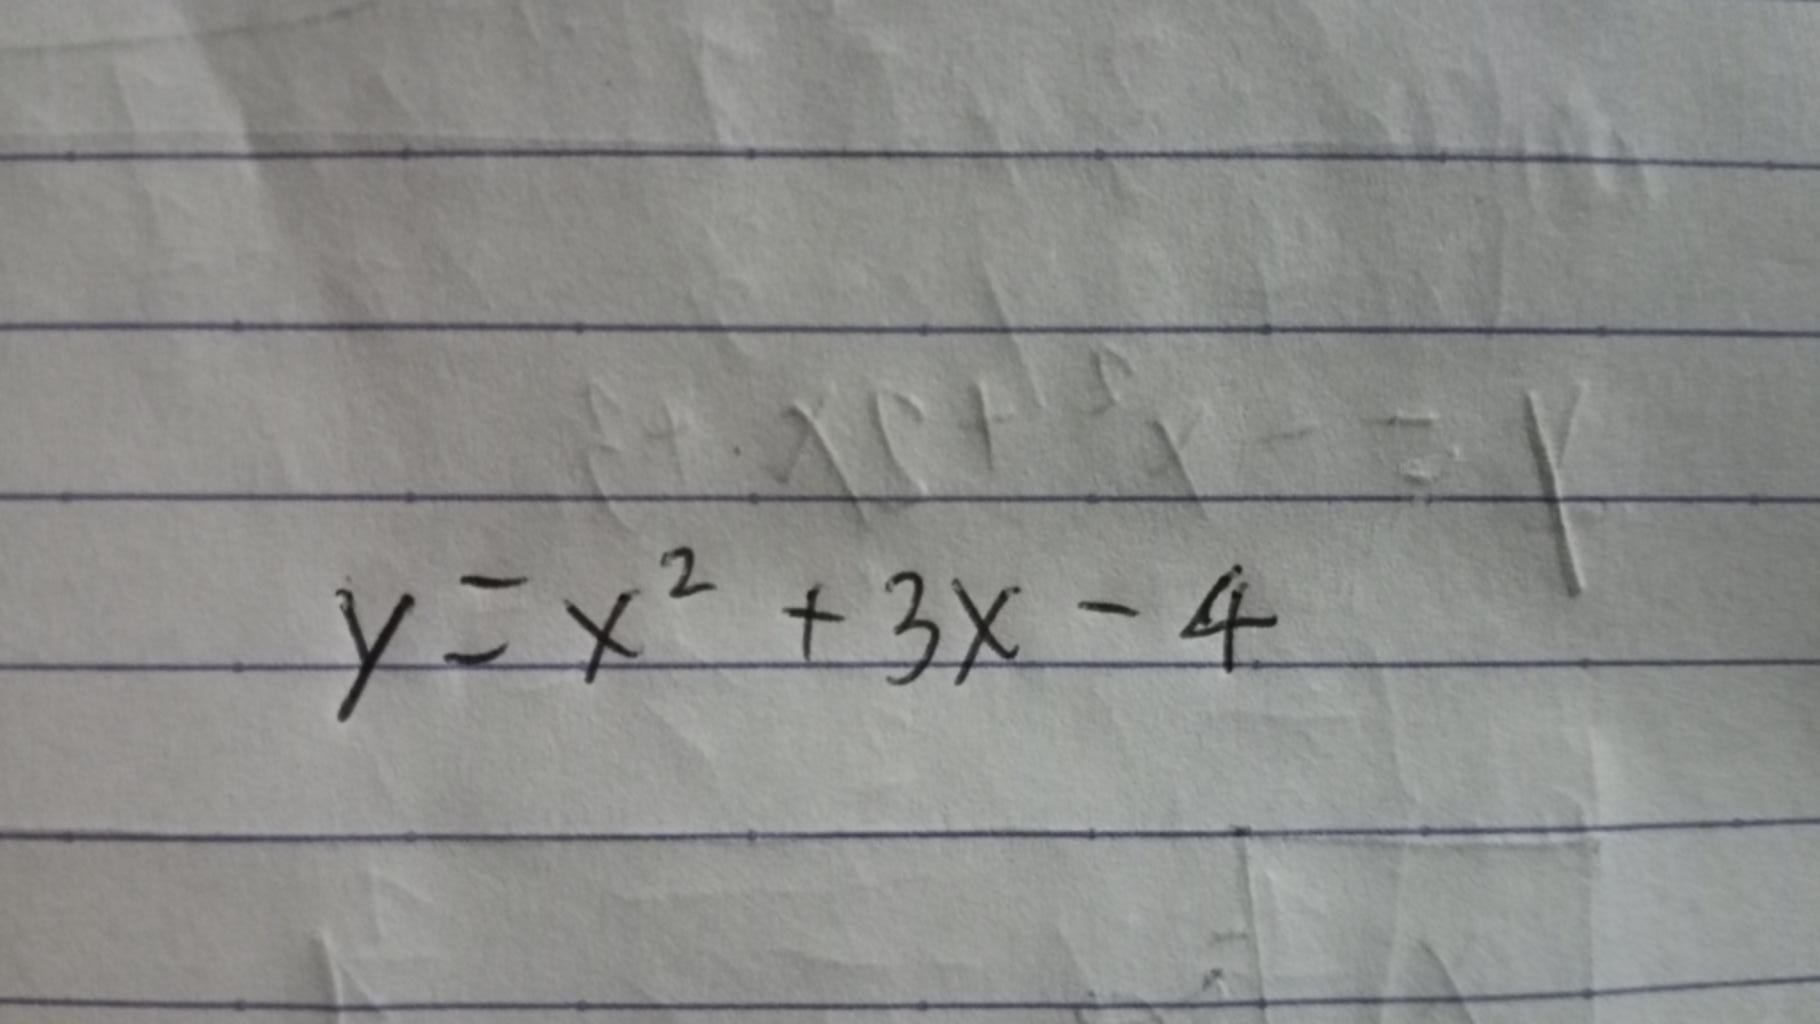 y = x² + 3x - 4